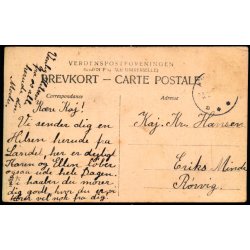 VERDENSPOSTFORENINGEN
(UNION POSTALE UNIVERSELLE)
BREVKORT – CARTE POSTALE
Correspondance
Adresse
Kære Kaj!
Vi sender dig en
Hilsen herude fra
Landet, her er dejligt
Karen og Ellen løber
ogsaa ude hele Dagen.
Vi haaber du morer
dig godt, hvor du er
vel nok fra dig.
Kaj. Kr. Hansen
Eriks Minde
Rørvig.